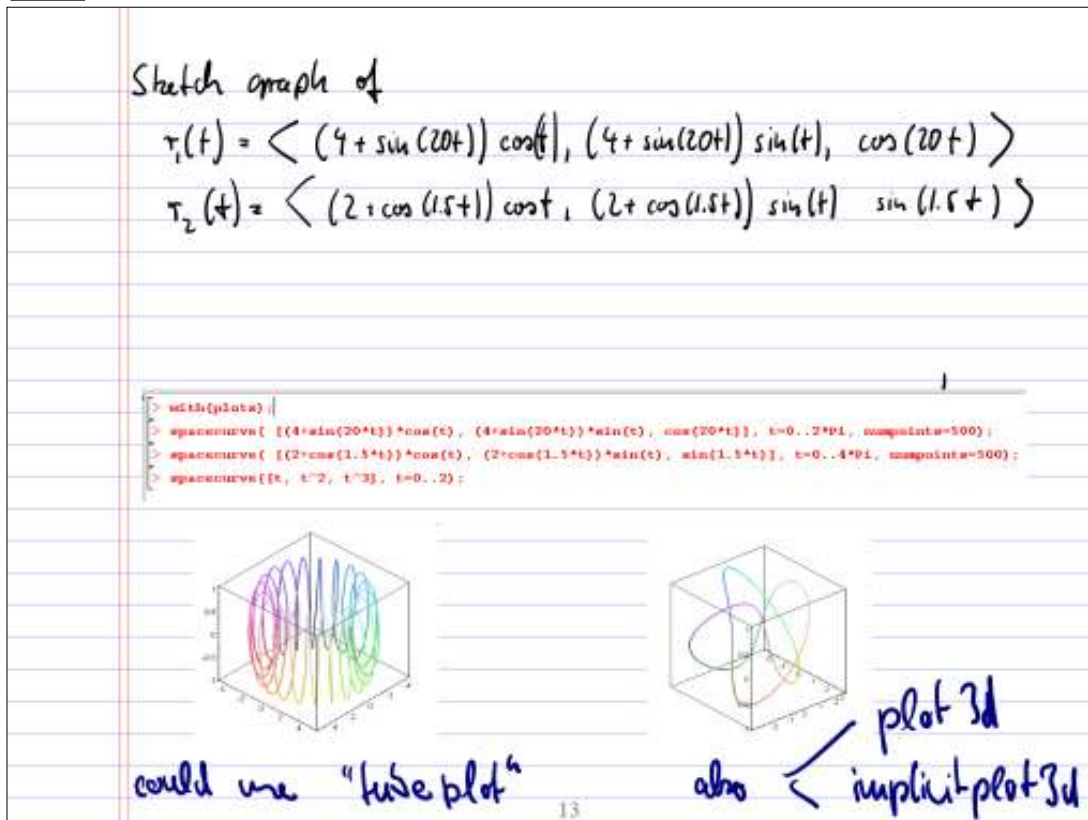 Sketch graph of
r₁(t) = < (4 + sin(20t)) cos(t), (4 + sin(20t)) sin(t), cos(20t) >
r₂(t) = < (2 + cos(1.5t)) cos t, (2 + cos(1.5t)) sin(t) sin(1.5t) >
> with(plots);
> spacecurve( [(4+sin(20*t))*cos(t), (4+sin(20*t))*sin(t), cos(20*t)], t=0..2*Pi, numpoints=500);
> spacecurve( [(2+cos(1.5*t))*cos(t), (2+cos(1.5*t))*sin(t), sin(1.5*t)], t=0..4*Pi, numpoints=500);
> spacecurve([t, t^2, t^3], t=0..2);
plot 3d
could use "tubeplot" also < implicitplot 3d
13